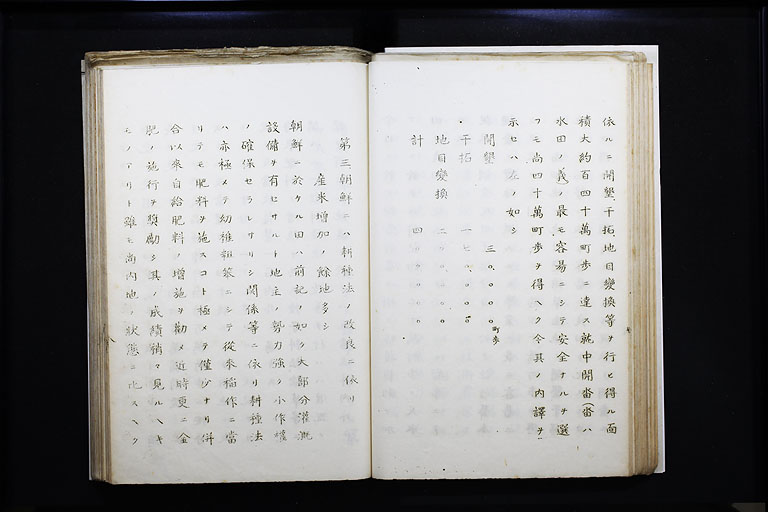 依ルニ開墾、干拓、地目變換等ヲ行ヒ得ル面
積大約百四十萬町歩ニ達ス就中開畓(畓ハ
水田ノ義)ノ最モ容易ニシテ安全ナルヲ選
フモ尚四十萬町歩ヲ得ヘク今其ノ内譯ヲ
示セハ左ノ如シ
開墾 三〇.〇〇〇町歩
干拓 一七〇.〇〇〇
地目變換 二〇〇.〇〇〇
計 四〇〇.〇〇〇
第三朝鮮ニハ耕種法ノ改良ニ依リ
産米増加ノ餘地多シ
朝鮮ニ於ケル田ハ前記ノ如ク大部分灌漑
設備ヲ有セサルト地主ノ勢力強ク小作權
ノ確保セラレサリシ関係等ニ依リ耕種法
ハ亦極メテ幼稚粗策ニシテ從來稲作ニ當
リテモ肥料ヲ施スコト極メテ僅少ナリ併
合以來自給肥料ノ増施ヲ勸メ近時更ニ金
肥ノ施行ヲ奨勵シ其ノ成績稍々見ルヘキ
モノアリト雖モ尚内地ノ狀態ニ比スヘク